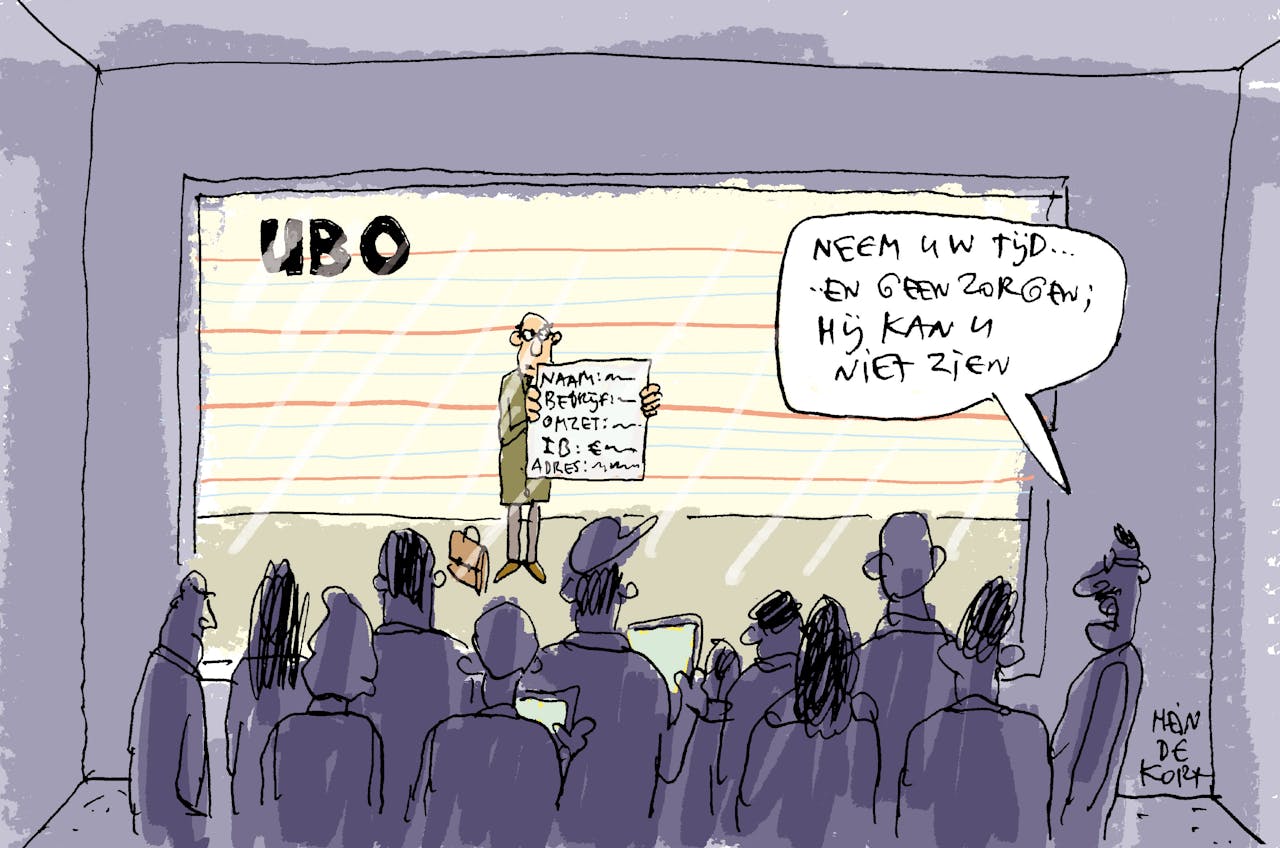 UBO
NEEM UW TIJD...
..EN GEEN ZORGEN;
HIJ KAN U
NIET ZIEN
NAAM:
BEDRIJF:
OMZET:
IB: €
ADRES:
HEIN
DE
KORT